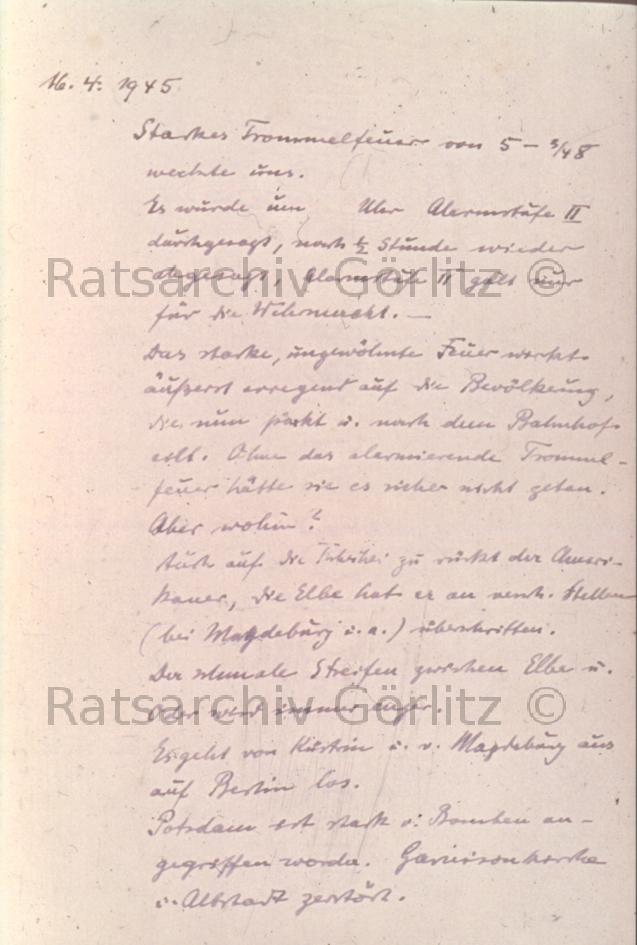 16. 4. 1945
Starkes Trommelfeuer von 5 – 3/4 8
weckte uns.
Es wurde um Uhr Alarmstufe II
durchgesagt, nach 1/2 Stunde wieder
abgesagt, Alarmstufe II gilt nur
für die Wehrmacht. —
Das starke, ungewöhnte Feuer wirkt
äußerst erregend auf die Bevölkerung,
die nun packt u. nach dem Bahnhof
eilt. Ohne das alarmierende Trommel-
feuer hätte sie es sicher nicht getan.
Aber wohin?
Auch auf die zu rückt der Ameri-
kaner, die Elbe hat er an versch. Stellen
(bei Magdeburg u. a.) überschritten.
Der schmale Streifen zwischen Elbe u.
Oder wird immer enger.
Es geht von Küstrin u. v. Magdeburg aus
auf Berlin los.
Potsdam ist stark v. Bomben an-
gegriffen worden. Garnisonkirche
u. Altstadt zerstört.
Ratsarchiv Görlitz ©
Ratsarchiv Görlitz ©